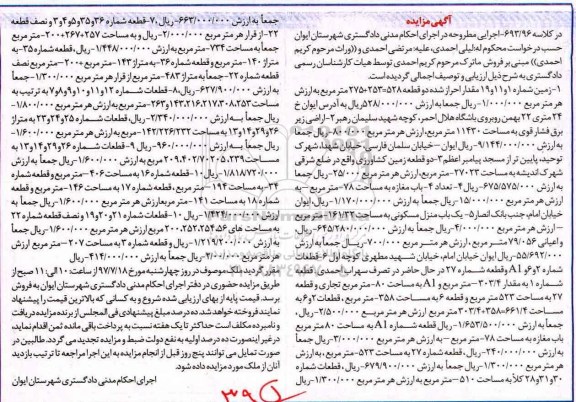 آگهی مزایده
در کلاسه ۶۹۳/۹۶- اجرایی مطروحه در اجرای احکام مدنی دادگستری شهرستان ایوان
حسب درخواست محکوم له: لیلی احمدی، علیه: مرتضی احمدی و ((وراث مرحوم کریم
احمدی)) مبنی بر فروش ماترک مرحوم کریم احمدی توسط هیات کارشناسان رسمی
دادگستری به شرح ذیل ارزیابی و توصیف اجمالی گردیده است.
۱-زمین شماره ۱و۱۱و۱۹ مقدار احراز شده دو قطعه ۵۲۸=۲۵۳+۲۷۵ متر مربع به ارزش
هر متر مربع ۱/۰۰۰/۰۰۰-ریال جمعا به ارزش ۵۲۸/۰۰۰/۰۰۰ ریال به آدرس ایوان خ
۲۴ متری ۲۲ بهمن روبروی باشگاه هلال احمر، کوچه شهید سلیمان رهبر ۲-اراضی زیر
برق فشار قوی به مساحت ۱۱۴۳۰ متر مربع، ارزش هر متر مربع ۸۰۰/۰۰۰-ریال جمعاً
۹/۱۴۴/۰۰۰/۰۰۰-ریال ایوان - خیابان سلمان فارسی - خیابان شهدا، شهرک
توحید، پایین تر از مسجد پیامبر اعظم ۳-دو قطعه زمین کشاورزی واقع در ضلع شرقی
شهرک اندیشه به مساحت ۲۷۰۲۳-متر مربع، ارزش هر متر مربع ۲۵/۰۰۰-ریال جمعاً
به ارزش ۶۷۵/۵۷۵/۰۰۰-ریال ۴-تعداد ۴-باب مغازه به مساحت ۷۸-متر مربع - به
ارزش هر متر مربع ۱۵/۰۰۰/۰۰۰-ریال جمعاً به ارزش ۱/۱۷۰/۰۰۰/۰۰۰-ریال، ایوان
خیابان امام، جنب بانک انصار ۵-یک باب منزل مسکونی به مساحت ۱۶۱/۳۲-متر مربع
-ارزش هر متر مربع ۴/۰۰۰/۰۰۰-ریال جمعاً به ارزش ۶۴۵/۲۸۰/۰۰۰-ریال
و اعیانی ۷۹/۰۵۶ متر مربع، ارزش هر متر مربع ۷۰۰/۰۰۰-ریال جمعاً به ارزش
۵۵/۶۹۲/۰۰۰-ریال ایوان خیابان امام، خیابان شهید مطهری کوچه اول ۶-قطعات
شماره ۲و۶و A1 و قطعه شماره ۲۷ در حال حاضر در تصرف سهراب احمدی، قطعه
شماره ۱ به مقدار ۳۰۳/۴-متر مربع و A1 به مساحت ۸۰-متر مربع تجاری و قطعه
۲۷ به مساحت ۵۲۳ متر مربع و قطعه ۶ به مساحت ۳۵۸-متر مربع، قطعات ۲و۶ به
مساحت ۶۶۱/۴=۳۵۸+۳۰۳/۴ متر مربع ارزش هر متر مربع ۲/۵۰۰/۰۰۰-ریال
جمعاً به ارزش ۱/۶۵۳/۵۰۰/۰۰۰-ریال قطعه شماره A1 به مساحت ۸۰ متر مربع
باب مغازه به مساحت ۷۸-متر مربع - به ارزش هر متر مربع ۳/۰۰۰/۰۰۰-ریال جمعاً
به ارزش ۲۴۰/۰۰۰/۰۰۰-ریال، قطعه شماره ۲۷ به مساحت ۵۲۳-متر مربع، به ارزش
هر متر مربع ۱/۳۰۰/۰۰۰-ریال جمعاً به ارزش ۶۷۹/۹۰۰/۰۰۰-ریال، قطعات شماره
۳۰و۳۱و۲۸ کلاً به مساحت ۵۱۰-متر مربع به ارزش هر متر مربع ۱/۳۰۰/۰۰۰-ریال
جمعاً به ارزش ۶۶۳/۰۰۰/۰۰۰-ریال، ۷-قطعه شماره ۳۶و۳۵و۵و۴و۳ و نصف قطعه
۲۲-از قرار هر متر مربع ۲/۰۰۰/۰۰۰-ریال و به مساحت ۲۵۷+۲۶۷+۲۰۰-متر مربع
جمعاً به مساحت ۷۳۴-متر مربع به ارزش ۱/۴۴۸/۰۰۰/۰۰۰-ریال، قطعه شماره ۳۵-به
متراژ ۱۴۰-متر مربع و قطعه شماره ۳۶-به متراژ ۱۴۳-متر مربع +۲۰۰-متر مربع نصف
قطعه شماره ۲۲-جمعاً به متراژ ۴۸۳-متر مربع از قرار هر متر مربع ۱/۳۰۰/۰۰۰-جمعاً
به ارزش ۶۲۷/۹۰۰/۰۰۰-ریال ۸-قطعات شماره ۱۲و۱۱و۱۰و۹و۸و۷ به ترتیب به
مساحت ۲۵۳،۳۰۸،۲۱۷،۲۱۶،۱۴۳و۲۶۳-متر مربع به ارزش هر متر مربع ۱/۸۰۰/۰۰۰-
ریال جمعاً به ارزش ۲/۳۴۰/۰۰۰/۰۰۰-ریال، قطعات شماره ۲۵و۲۴و۲۳ به متراژ
۱۳و۱۴و۲۹و۲۶ به مساحت ۱۴۲/۲۲۶/۲۳۲-مربع به ارزش هر متر مربع ۱/۶۰۰/۰۰۰-
ریال جمعاً به ارزش ۹۶۰/۰۰۰/۰۰۰-ریال ۹-قطعات شماره ۲۶و۲۹و۱۴و۱۳ به
مساحت ۲۳۹،۲۰۵،۷۰،۲۰۹/۴۰۲ مربع به ارزش ۱/۶۰۰/۰۰۰-ریال جمعاً به ارزش
۱/۸۱۸/۷۲۰/۰۰۰-ریال ۱۰-قطعه شماره ۱۶ به مساحت ۴۰۶-متر مربع و قطعه
۳۴-به مساحت ۱۹۴-متر مربع، قطعه شماره ۱۷ به مساحت ۱۴۶-متر مربع و قطعه
شماره ۱۸ به مساحت ۱۴۱-متر مربع ارزش هر متر مربع ۱/۶۰۰/۰۰۰-ریال جمعاً به
ارزش ۱/۴۲۴/۰۰۰/۰۰۰-ریال ۱۰-قطعات شماره ۲۱و۲۰و۱۹ و نصف قطعه شماره ۲۲
به مساحت های ۲۰۰،۲۵۲،۲۵۴،۵۶ مربع ارزش هر متر مربع ۱/۶۰۰/۰۰۰-ریال جمعاً
به ارزش ۱/۲۱۹/۲۰۰/۰۰۰-ریال و قطعه شماره ۳ به مساحت ۲۰۷-متر مربع ارزش
هر متر مربع ۲/۰۰۰/۰۰۰-ریال جمعاً به ارزش ۴۱۴/۰۰۰/۰۰۰-ریال
مقرر گردید ملک موصوف در روز چهارشنبه مورخ ۹۷/۷/۱۸ از ساعت ۱۰ الی ۱۱ صبح از
طریق مزایده حضوری در دفتر اجرای احکام مدنی دادگستری شهرستان ایوان به فروش
برسد. قیمت پایه از بهای ارزیابی شده شروع و به کسانی که بالاترین قیمت را پیشنهاد
نمایند فروخته خواهد شد، ده درصد مبلغ پیشنهادی فی المجلس از برنده مزایده دریافت
و نامبرده مکلف است حداکثر تا یک هفته نسبت به پرداخت باقی مانده ثمن اقدام نماید،
در غیر اینصورت ده درصد اولیه به نفع دولت ضبط و مزایده تجدید می گردد. طالبین در
صورت تمایل می توانند پنج روز قبل از انجام مزایده به این اجرا مراجعه تا ترتیب بازدید
آنان از ملک مورد مزایده داده شود.
اجرای احکام مدنی دادگستری شهرستان ایوان